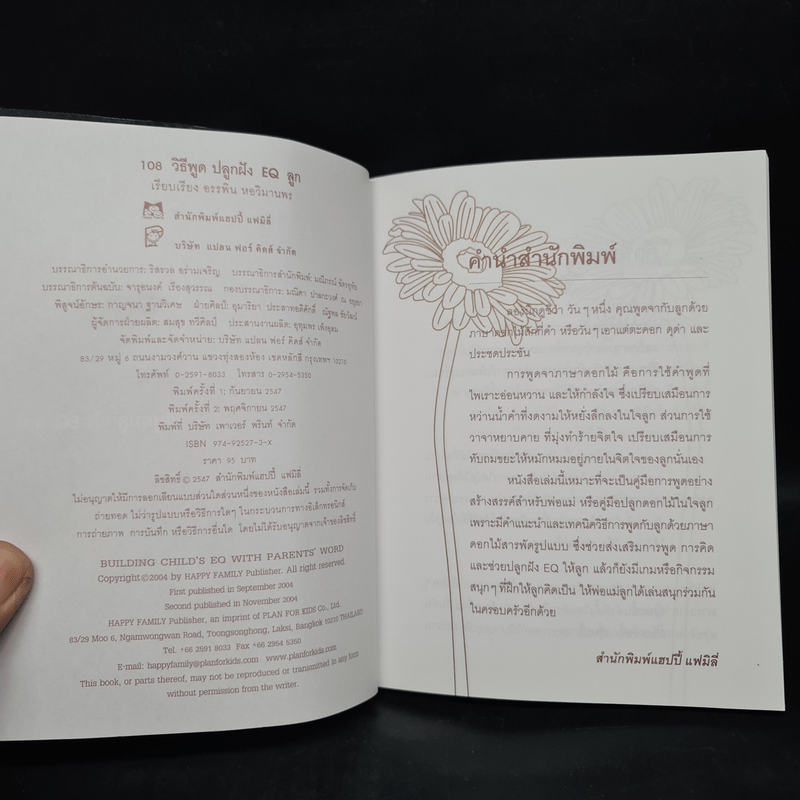 108 วิธีพูด ปลูกฝัง EQ ลูก
เรียบเรียง อรรพิน หอวิมานพร
สำนักพิมพ์แฮปปี้ แฟมิลี่
บริษัท แปลน ฟอร์ คิดส์ จำกัด
บรรณาธิการอำนวยการ: ริสรวล อร่ามเจริญ บรรณาธิการสำนักพิมพ์: มณีภรณ์
บรรณาธิการต้นฉบับ: จารุอนงค์ เรืองสุวรรณ กองบรรณาธิการ: มณิดา
พิสูจน์อักษร: กาญจนา ฐานวิเศษ ฝ่ายศิลป์: อุมาริยา
ผู้จัดการฝ่ายผลิต: สมสุข ทวีศิลป์ ประสานงานผลิต: อุทุมพร
จัดพิมพ์และจัดจำหน่าย: บริษัท แปลน ฟอร์ คิดส์ จำกัด
83/29 หมู่ 6 ถนนงามวงศ์วาน แขวงทุ่งสองห้อง เขตหลักสี่ กรุงเทพฯ 10210
โทรศัพท์ 0-2591-8033 โทรสาร 0-2954-5350
พิมพ์ครั้งที่ 1: กันยายน 2547
พิมพ์ครั้งที่ 2: พฤศจิกายน 2547
พิมพ์ที่ บริษัท เพาเวอร์ พริ้นท์ จำกัด
ISBN 974-92527-3-X
ราคา 95 บาท
ลิขสิทธิ์ © 2547 สำนักพิมพ์แฮปปี้ แฟมิลี่
ไม่อนุญาตให้มีการลอกเลียนแบบส่วนใดส่วนหนึ่งของหนังสือเล่มนี้ รวมทั้งการจัดเก็บ
ถ่ายทอด ไม่ว่ารูปแบบหรือวิธีการใดๆ ในกระบวนการทางอิเล็กทรอนิกส์
การถ่ายภาพ การบันทึก หรือวิธีการอื่นใด โดยไม่ได้รับอนุญาตจากเจ้าของลิขสิทธิ์
BUILDING CHILD'S EQ WITH PARENTS' WORD
Copyright©2004 by HAPPY FAMILY Publisher. All right reserved.
First published in September 2004
Second published in November 2004
HAPPY FAMILY Publisher, an imprint of PLAN FOR KIDS Co., Ltd.
83/29 Moo 6, Ngamwongwan Road, Toongsonghong, Laksi, Bangkok 10210 THAILAND
Tel. +66 2591 8033 Fax +66 2954 5350
E-mail: happyfamily@planforkids.com www.planforkids.com
This book, or parts thereof, may not be reproduced or transmitted in any form
without permission from the writer.
คำนำสำนักพิมพ์
ลองนึกดูซิว่า วันๆ หนึ่ง คุณพูดจากับลูกด้วย
ภาษาดอกไม้สักกี่คำ หรือวันๆ เอาแต่ตะคอก ดุด่า และ
ประชดประชัน
การพูดจาภาษาดอกไม้ คือการใช้คำพูดที่
ไพเราะอ่อนหวาน และให้กำลังใจ ซึ่งเปรียบเสมือนการ
หว่านน้ำคำที่งดงามให้หยั่งลึกลงในใจลูก ส่วนการใช้
วาจาหยาบคาย ที่มุ่งทำร้ายจิตใจ เปรียบเสมือนการ
ทับถมขยะให้หมักหมมอยู่ภายในจิตใจของลูกนั่นเอง
หนังสือเล่มนี้เหมาะที่จะเป็นคู่มือการพูดอย่าง
สร้างสรรค์สำหรับพ่อแม่ หรือคู่มือปลูกดอกไม้ในใจลูก
เพราะมีคำแนะนำและเทคนิควิธีการพูดกับลูกด้วยภาษา
ดอกไม้สารพัดรูปแบบ ซึ่งช่วยส่งเสริมการพูด การคิด
และช่วยปลูกฝัง EQ ให้ลูก แล้วก็ยังมีเกมหรือกิจกรรม
สนุกๆ ที่ฝึกให้ลูกคิดเป็น ให้พ่อแม่ลูกได้เล่นสนุกร่วมกัน
ในครอบครัวอีกด้วย
สำนักพิมพ์แฮปปี้ แฟมิลี่